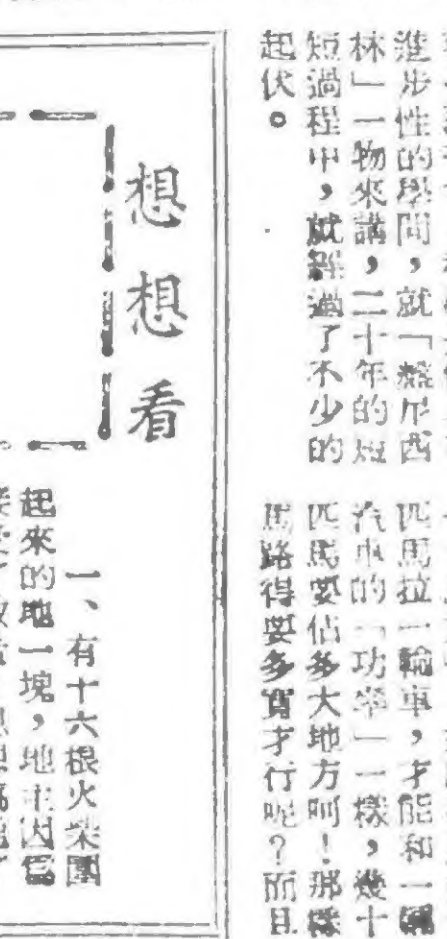 進步性的學問，就「盤尼西
林」一物來講，二十年的短
短過程中，就經過了不少的
起伏。
匹馬拉一輪車，才能和一輛
汽車的「功率」一樣，幾十
匹馬要佔多大地方呵！那樣
馬路得要多寬才行呢？而且
想想看
一、有十六根火柴圍
起來的地一塊，地主因爲